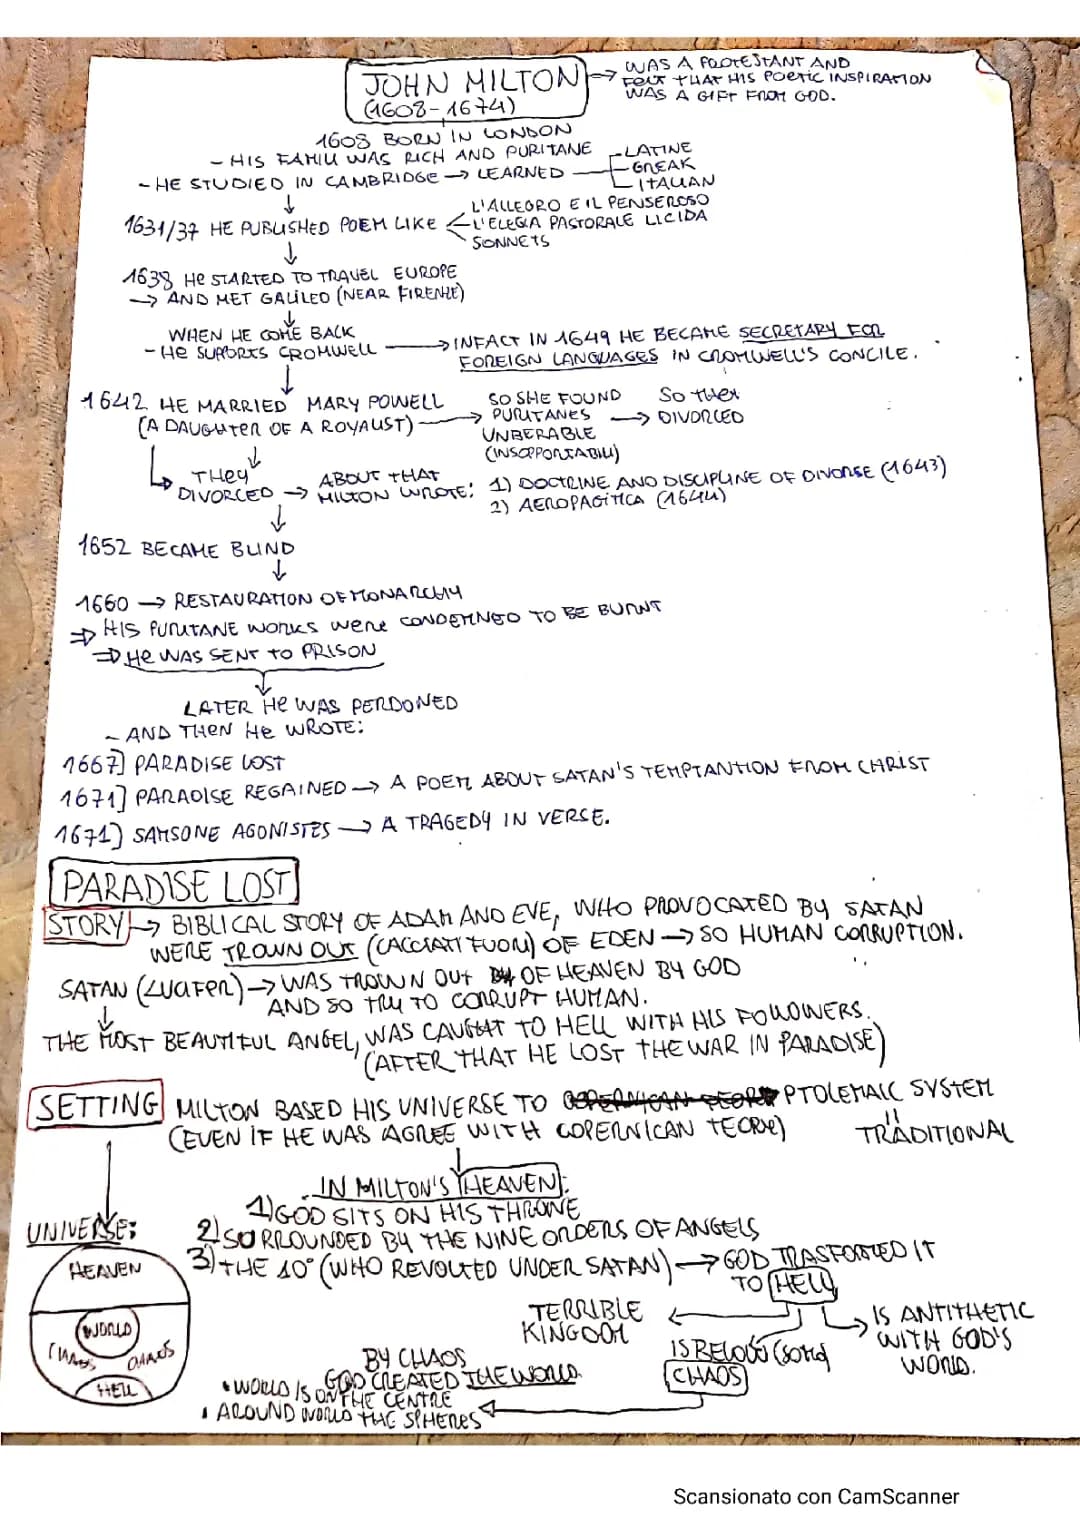 JOHN MILTON
(1608-1674)
→ WAS A PROTESTANT AND
FELT THAT HIS POETIC INSPIRATION
WAS A GIFT FROM GOD.
1608 BORN IN LONDON
- HIS FAMILI WAS RICH AND PURITANE
- HE STUDIED IN CAMBRIDGE → LEARNED
- LATINE
- GREAK
- ITALIAN
1631/37 HE PUBLISHED POEM LIKE
L'ALLEGRO E IL PENSEROSO
L'ELEGIA PASTORALE LICIDA
SONNETS
1638 HE STARTED TO TRAVEL EUROPE
→ AND MET GALILEO (NEAR FIRENZE)
WHEN HE COME BACK
- HE SUPPORTS CROMWELL
→ INFACT IN 1649 HE BECAME SECRETARY FOR
FOREIGN LANGUAGES IN CROMWELL'S CONCILE.
1642 HE MARRIED MARY POWELL
(A DAUGHTER OF A ROYALIST) →
SO SHE FOUND
PURITANES
UNBERABLE
(INSOPPORTABILI)
→ SO THEY
DIVORCED
→ THEY
DIVORCED →
ABOUT THAT
MILTON WROTE:
1) DOCTRINE AND DISCIPLINE OF DIVORSE (1643)
2) AEROPAGITICA (1644)
1652 BECAME BLIND
1660 → RESTAURATION OF MONARCHY
⇒ HIS PURITANE WORKS WERE CONDEMNED TO BE BURNT
⇒ HE WAS SENT TO PRISON
LATER HE WAS PERDONED
- AND THEN HE WROTE:
1667) PARADISE LOST
1671) PARADISE REGAINED → A POEM ABOUT SATAN'S TEMPTANTION FROM CHRIST
1671) SAMSONE AGONISTES → A TRAGEDY IN VERSE.
PARADISE LOST
STORY → BIBLICAL STORY OF ADAM AND EVE, WHO PROVOCATED BY SATAN
WERE TROWN OUT (CACCIATI FUORI) OF EDEN → SO HUMAN CORRUPTION.
SATAN (LUCIFER) → WAS TROWN OUT OF HEAVEN BY GOD
AND SO TRY TO CORRUPT HUMAN.
THE MOST BEAUTIFUL ANGEL, WAS CAUGHT TO HELL WITH HIS FOLLOWERS.
(AFTER THAT HE LOST THE WAR IN PARADISE)
SETTING MILTON BASED HIS UNIVERSE TO PTOLEMAIC SYSTEM
(EVEN IF HE WAS AGREE WITH COPERNICAN TEORY)
TRADITIONAL
IN MILTON'S HEAVEN:
1) GOD SITS ON HIS THRONE
2) SORROUNDED BY THE NINE ORDERS OF ANGELS
3) THE 10° (WHO REVOLTED UNDER SATAN) → GOD TRASFORMED IT
TO HELL
UNIVERSE:
HEAVEN
WORLD
CHAOS CHAOS
HELL
TERRIBLE
KINGDOM
IS BELOW (SOTTO)
CHAOS
IS ANTITHETIC
WITH GOD'S
WORLD.
BY CHAOS
GOD CREATED THE WORLD
• WORLD IS ON THE CENTRE
• AROUND WORLD THE SPHERES
Scansionato con CamScanner